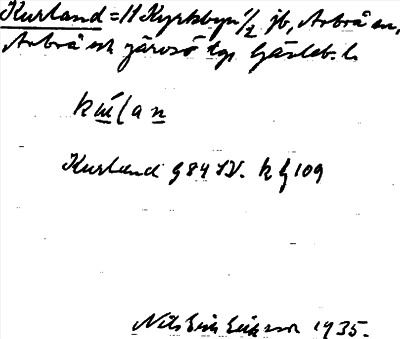 Kurland = 11 Kyrkbyn 1/2 jb, Arbrå sn,
Arbrå och Järvsö tg, Gävleb. l.
Kurland G 84 SV. k G 109
Nils Erik Eriksson 1935.